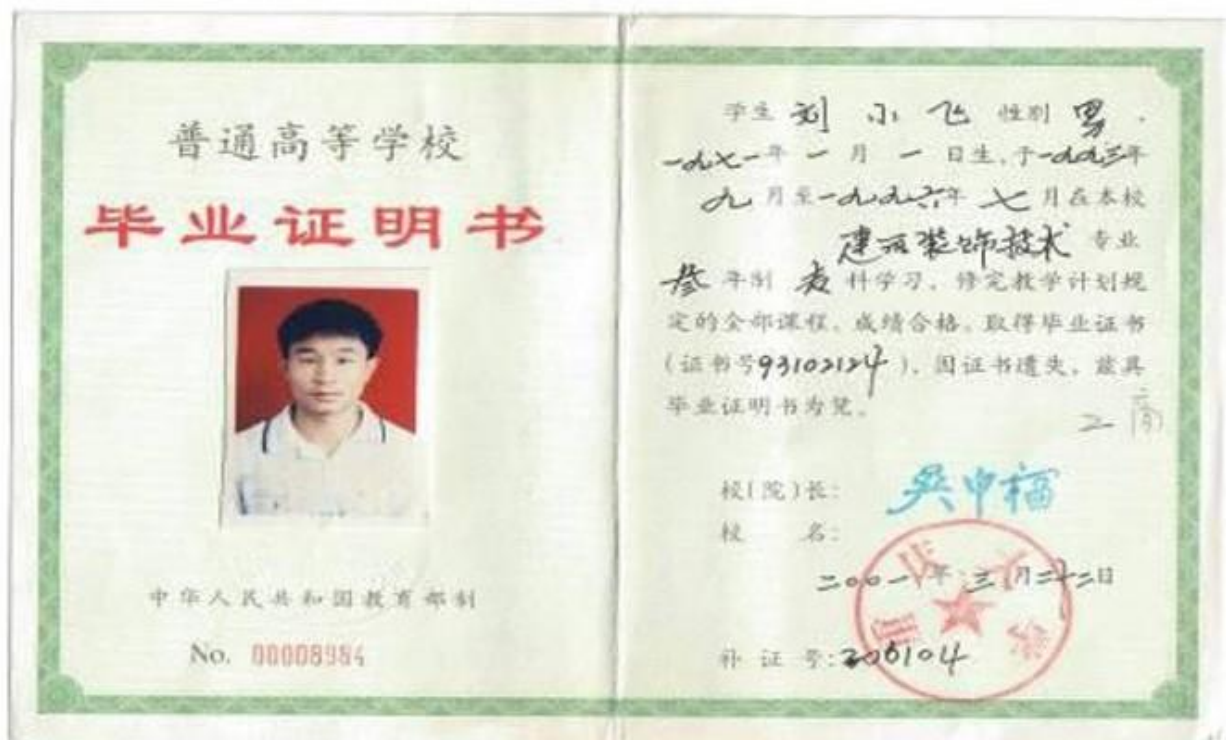 普通高等学校
毕业证明书
中华人民共和国教育部制
No. 00008984
学生 刘小飞 性别 男.
一九七一年一月一日生,于一九九三年
九月至一九九六年七月在本校
建筑装饰技术 专业
叁年制 专科学习、修完教学计划规
定的全部课程、成绩合格。取得毕业证书
(证书号93102124)、因证书遗失、兹具
毕业证明书为凭。
校(院)长: 吴中福
校 名:
二〇〇一年三月二十二日
补证号:206104